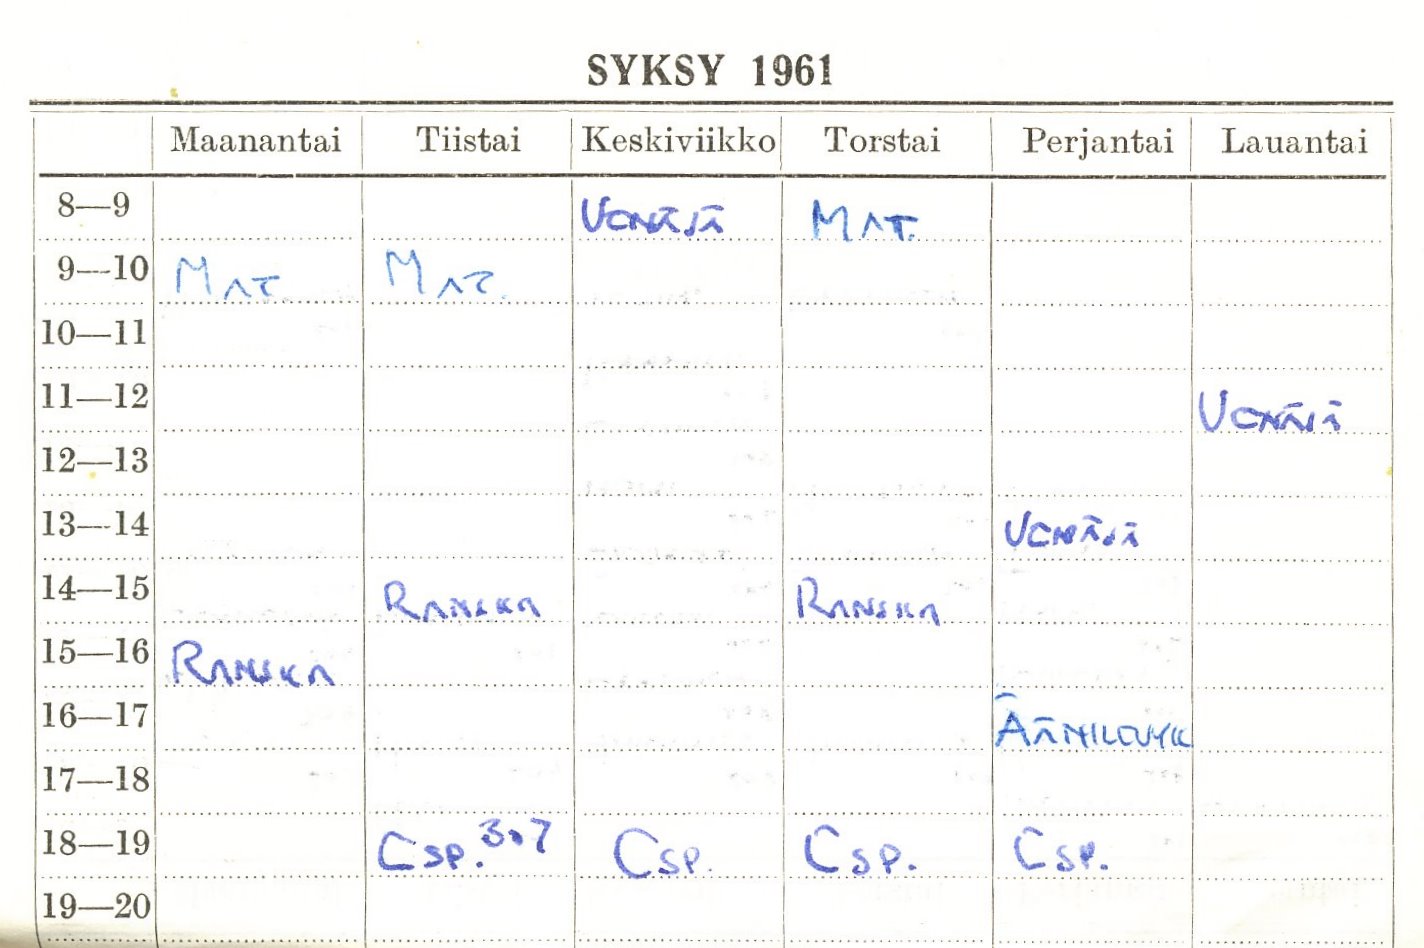 SYKSY 1961
Maanantai Tiistai Keskiviikko Torstai Perjantai Lauantai
8—9 VENÄJÄ MAT.
9—10 MAT. MAT.
10—11
11—12 VENÄJÄ
12—13
13—14 VENÄJÄ
14—15 RANSKA RANSKA
15—16 RANSKA
16—17
17—18
18—19 CSP. 307 CSP. CSP. CSP.
19—20